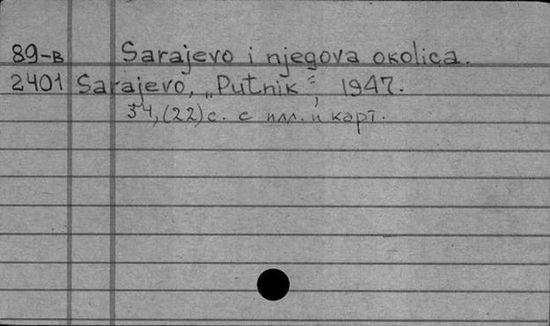 89-в Sarajevo i njegova okolica.
2401 Sarajevo, „Putnik“, 1947.
34, (22) с. с илл. и карт.